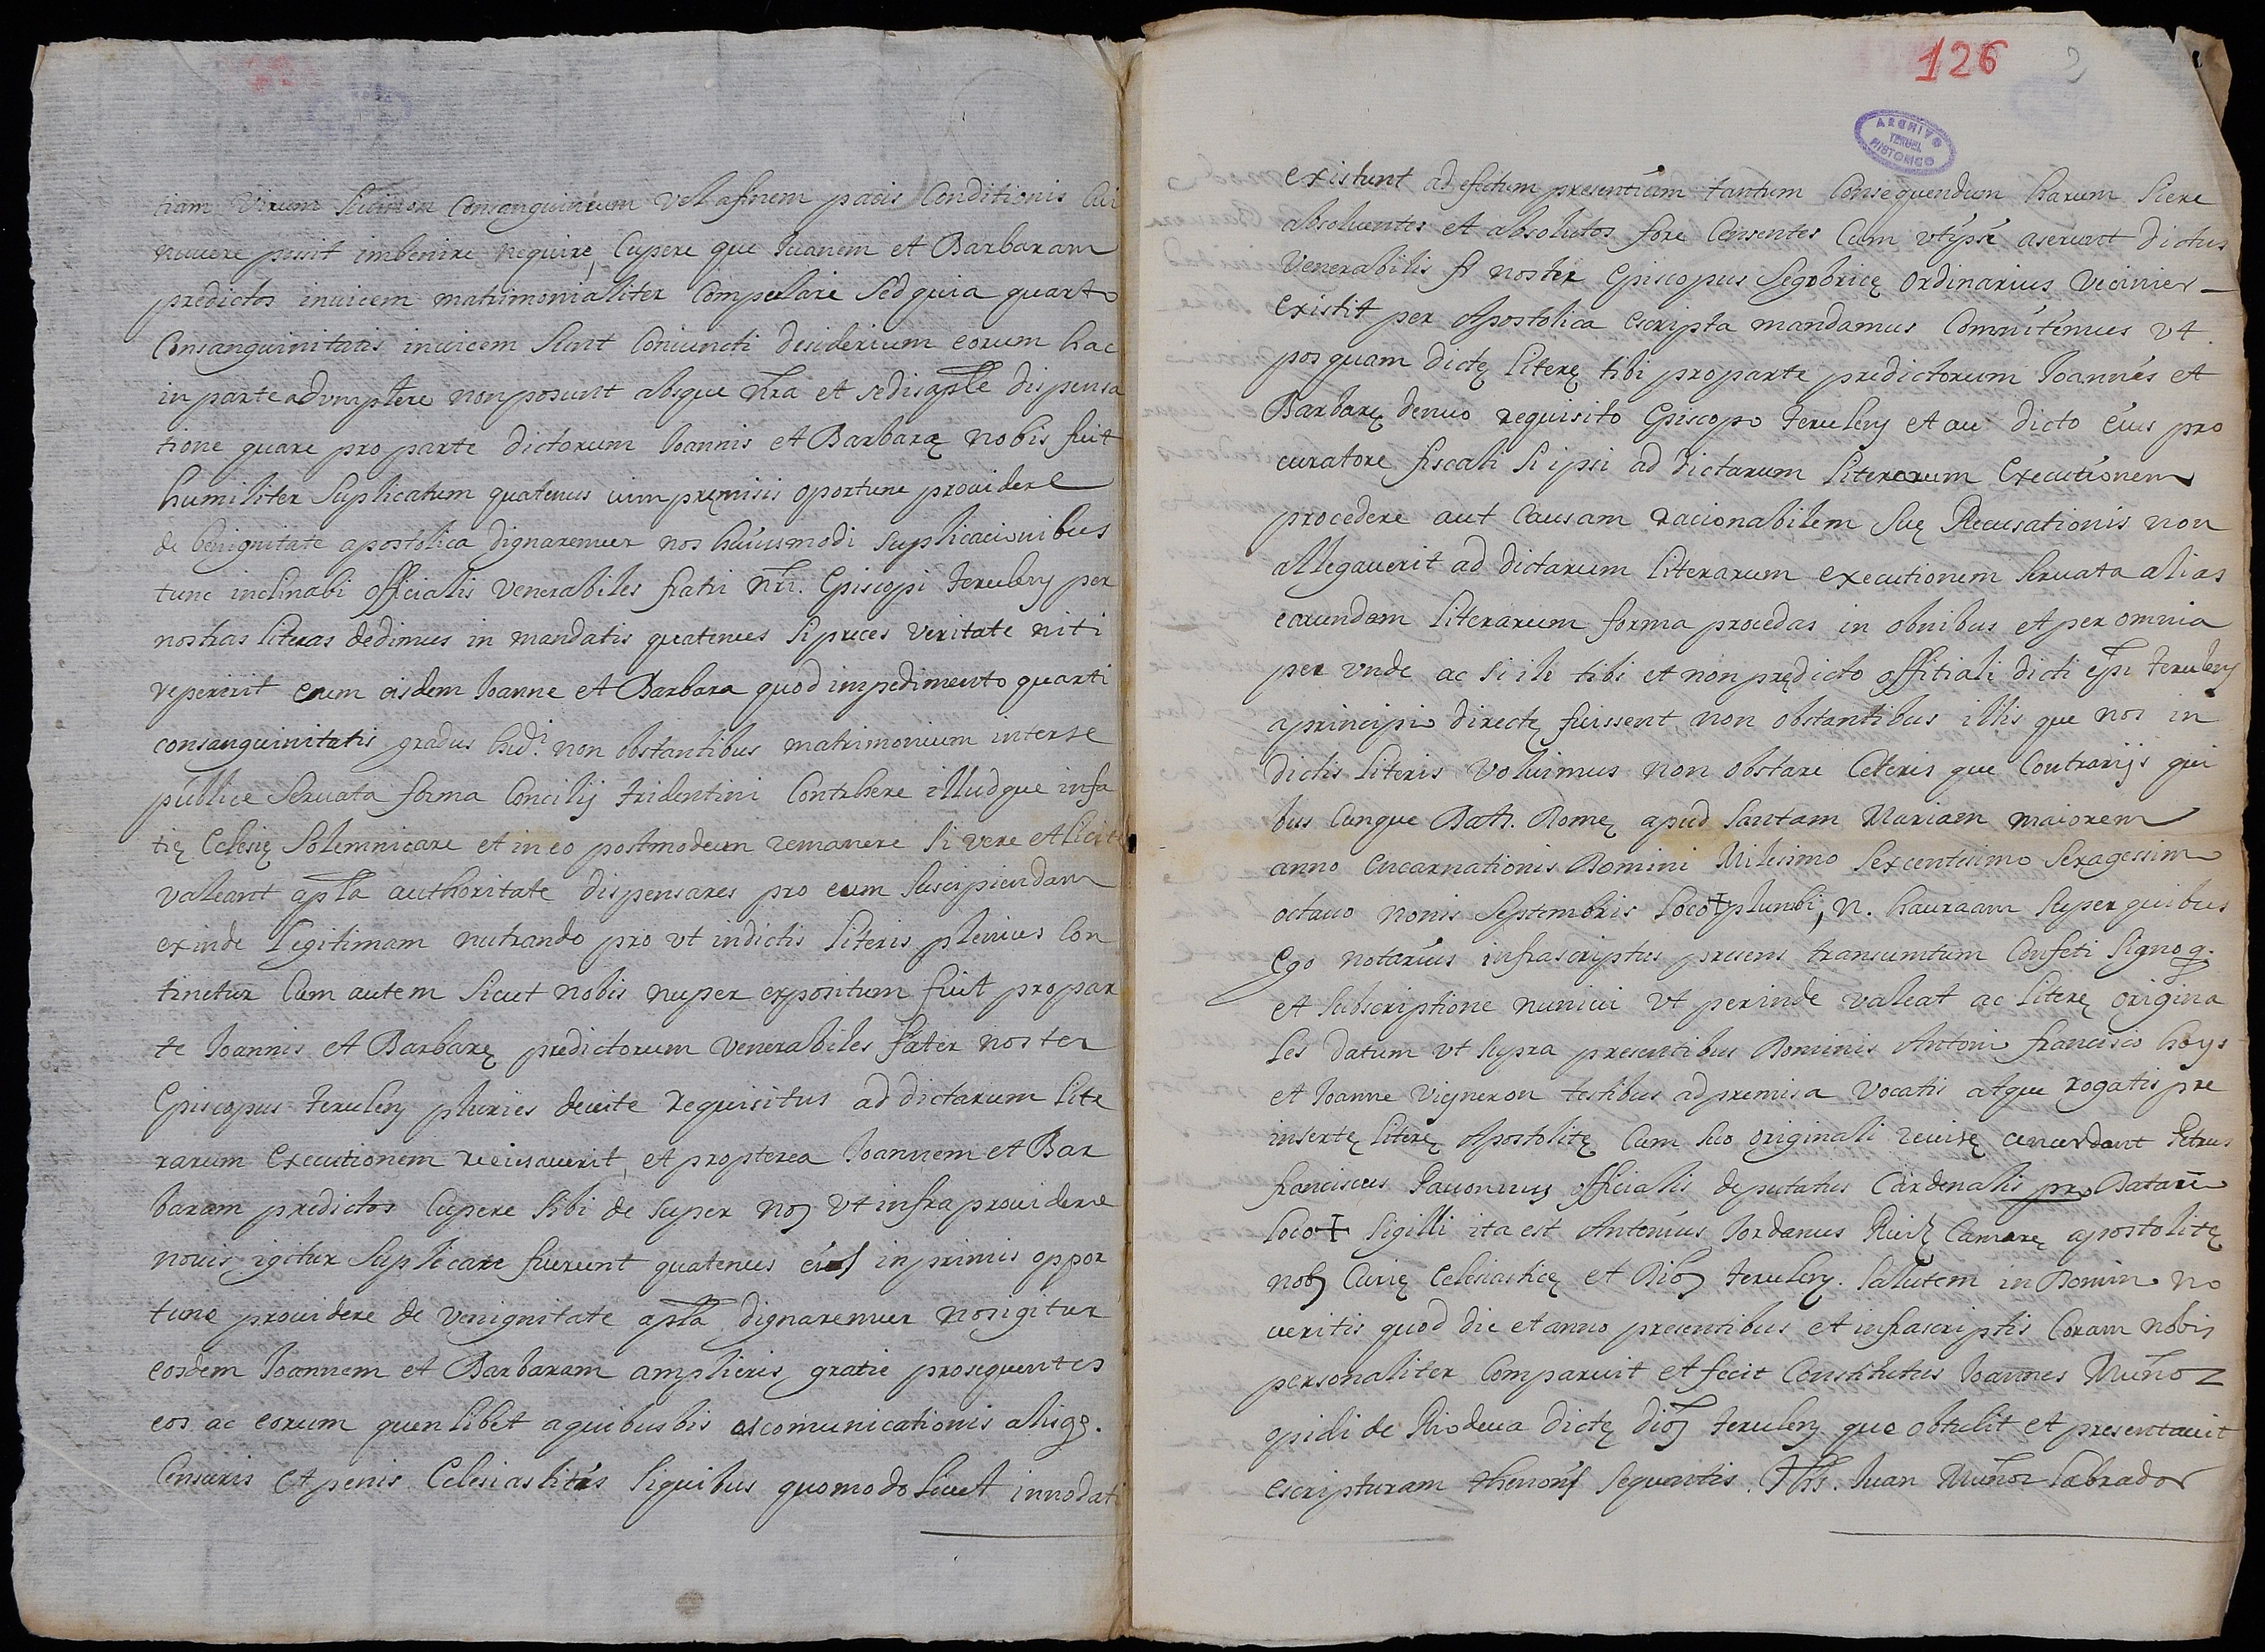 ciam virum sibi non consanguineum vel afinem paris conditionis cui
nuvere possit imbenire nequire, Cupere que Juanem et Barbaram
predictos invicem matrimonialiter Compelare Sed quia quarto
Consanguinitatis invicem Sunt Coniuncti desiderium eorum hac
in parte adumplere non posunt absque nr̃a et sedis aplẽ dispensa
tione quare pro parte dictorum Joannis et Barbarę nobis fuit
humiliter Suplicatum quatenus cum pręmisis oportune providere
de benignitate apostolica dignaremur nos huiusmodi Suplicacionibus
tunc inclinabi officialis Venerabiles fratri nr̃i. Episcopi terulen̨ per
nostras literas dedimus in mandatis quatenus Si preces veritate niti
reperirit cum eisdem Joanne et Barbara quod impedimento quarti
consanguinitatis gradus hudi. non obstantibus matrimonium inter se
publice Servata forma Concilij tridentini Contrhere illudque in fa
tię Eclesię Solemniçare et in eo postmodum remanere li vere et licite
valeant aplã authoritate dispensares pro cum Suscipiendam
exinde Legitimam nutrando pro ut in dictis literis plenius Con
tinetur Cum autem Sicut nobis nuper expositum fuit pro par
te Joannis et Barbarę predictorum Venerabiles frater noster
Episcopus terulen̨ pluries devite requisitus ad dictarum lite
rarum Executionem recusaverit, et propterea Joannem et Bar
baram predictos Cupere Sibi de Super nos ut infra providere
novis igitur Suplicare fuerunt quatenus eis in primis oppor
tune providere de venignitate aplã dignaremur nos igitur
eosdem Joannem et Barbaram amplieris gratie prosequentes
eos ac eorum quen libet a quibusbis escomunicationis alisqȝ.
Censuris et penis Eclesiasticis Siquibus quomodo livet innodati
126
2
ARCHIVO
HISTORICO
TERUEL
existunt ad efectum presentiam tantum Consequendum harum Siere
absolventes et absolutos fore Censentes Cum ut ypsi aserunt dictus
Venerabilis fr noster Episcopus Segobricę ordinarius Vecinier
existit per Apostolica escripta mandamus Commitimus ut
pos quam dictę literę tibi pro parte predictorum Joannes et
Barbarę denuo requisito Episcopo terulen̨ et au dicto eius pro
curatore fiscali Si ipsi ad dictarum literarum Executionem
procedere aut Causam racionabilem Suę Recusationis non
allegaverit ad dictarum literarum executionem Servata alias
earundem literarum forma procedas in obnibus et per omnia
per unde ac Si ili tibi et non prędicto offitiali dicti ep̃i terulen̨
aprincipio directę fuissent non obstantibus illis que nos in
dictis literis Voluimus non obstare Ceteris que Contrarijs qui
bus Cunque Dath. Romę apud Santam Mariam maiorem
anno Encarnationis Domini Milesimo Sexcentesimo Sexagessimo
octavo nonis Septembris Loco † plumbi, N. hauraam Super quibus
Ego notarius infrascriptus presens transumtum Confeti Signo q.
et Subscriptione munivi ut perinde valeat ac literę origina
les Datum ut Supra presentibus Dominis Antoni francisco hoys
et Joanne Vigneron testibus ad premisa Vocatis atque rogatis pre
insertę literę Apostolitę Cum Suo originali revisę concordant Petrus
franciscus officialis deputatus Cardenalis pro Datarii
Loco † Sigilli ita est Antonius Jordanus Camarę apostolitę
Curię Eclesiasticę et terulen̨. Salutem in Domino no
veritis quod die et anno presentibus et infrascriptis Coram nobis
personaliter Comparuit et fecit Constitutus Joannes Muñoz
opidi de Riodeva dictę terulen̨ que obtulit et presentavit
escripturam thenoris Sequentis. Juan Muñoz labrador